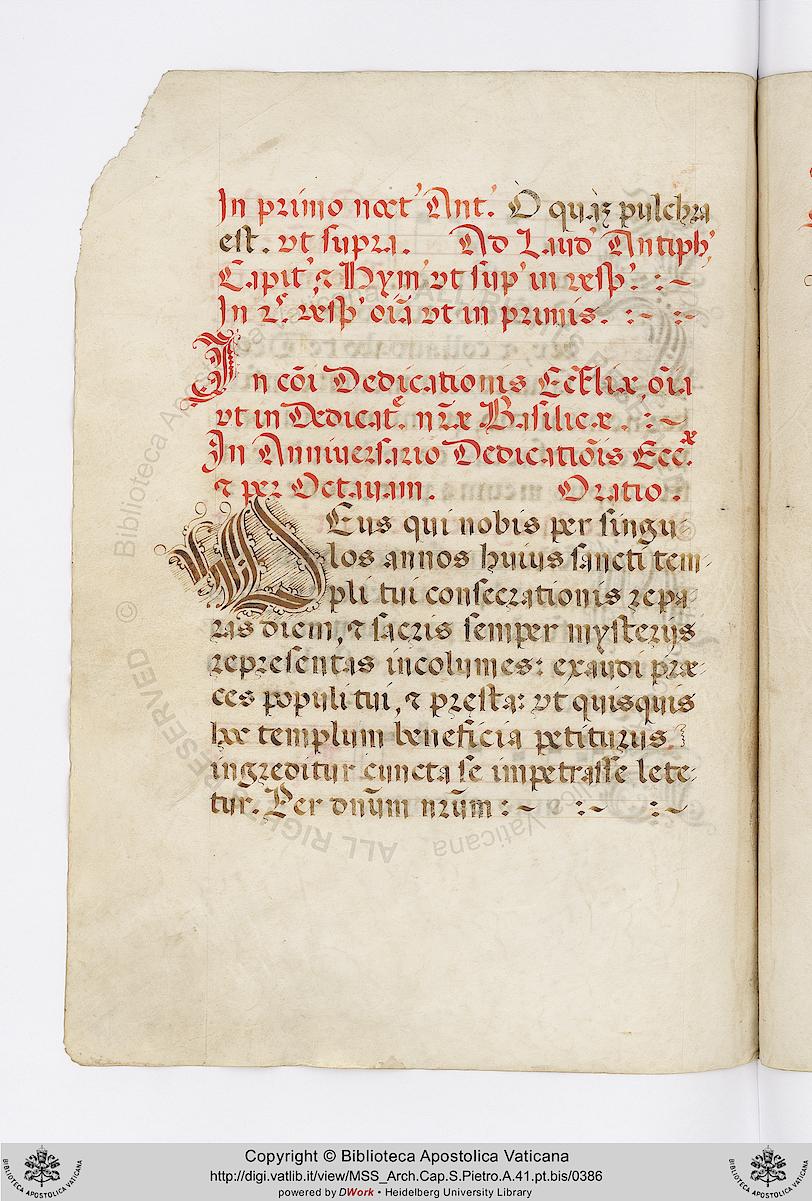 In primo noct' Ant.' O quaȝ pulchra
est. vt supra. Ad Laud' Antiph'
Capit' ⁊ Hym' vt sup' in resp'. :~
In 2.is resp' oīa vt in primis. :~ :~
In cōi Dedicationis Eccl̄iæ, oīa
vt in Dedicat.e nr̄æ Basilicæ. :~
In Anniuersario Dedicatiōis Ecc.æ
⁊ per Octauam. Oratio.
DEus qui nobis per singu-
los annos huius sancti tem-
pli tui consecrationis repa-
ras diem, ⁊ sacris semper mysterijs
repræsentas incolumes: exaudi præ-
ces populi tui, ⁊ præsta: vt quisquis
hoc templum beneficia petiturus
ingreditur cuncta se impetrasse lete-
tur. Per dnūm nrūm :~ :~ :~
© Biblioteca Apostolica Vaticana
ALL RIGHTS RESERVED
BIBLIOTECA APOSTOLICA VATICANA
Copyright © Biblioteca Apostolica Vaticana
http://digi.vatlib.it/view/MSS_Arch.Cap.S.Pietro.A.41.pt.bis/0386
powered by DWork • Heidelberg University Library
BIBLIOTECA APOSTOLICA VATICANA